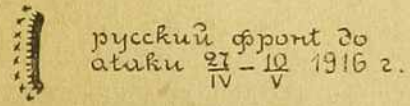 русский фронт до
атаки 27/IV – 10/V 1916 г.